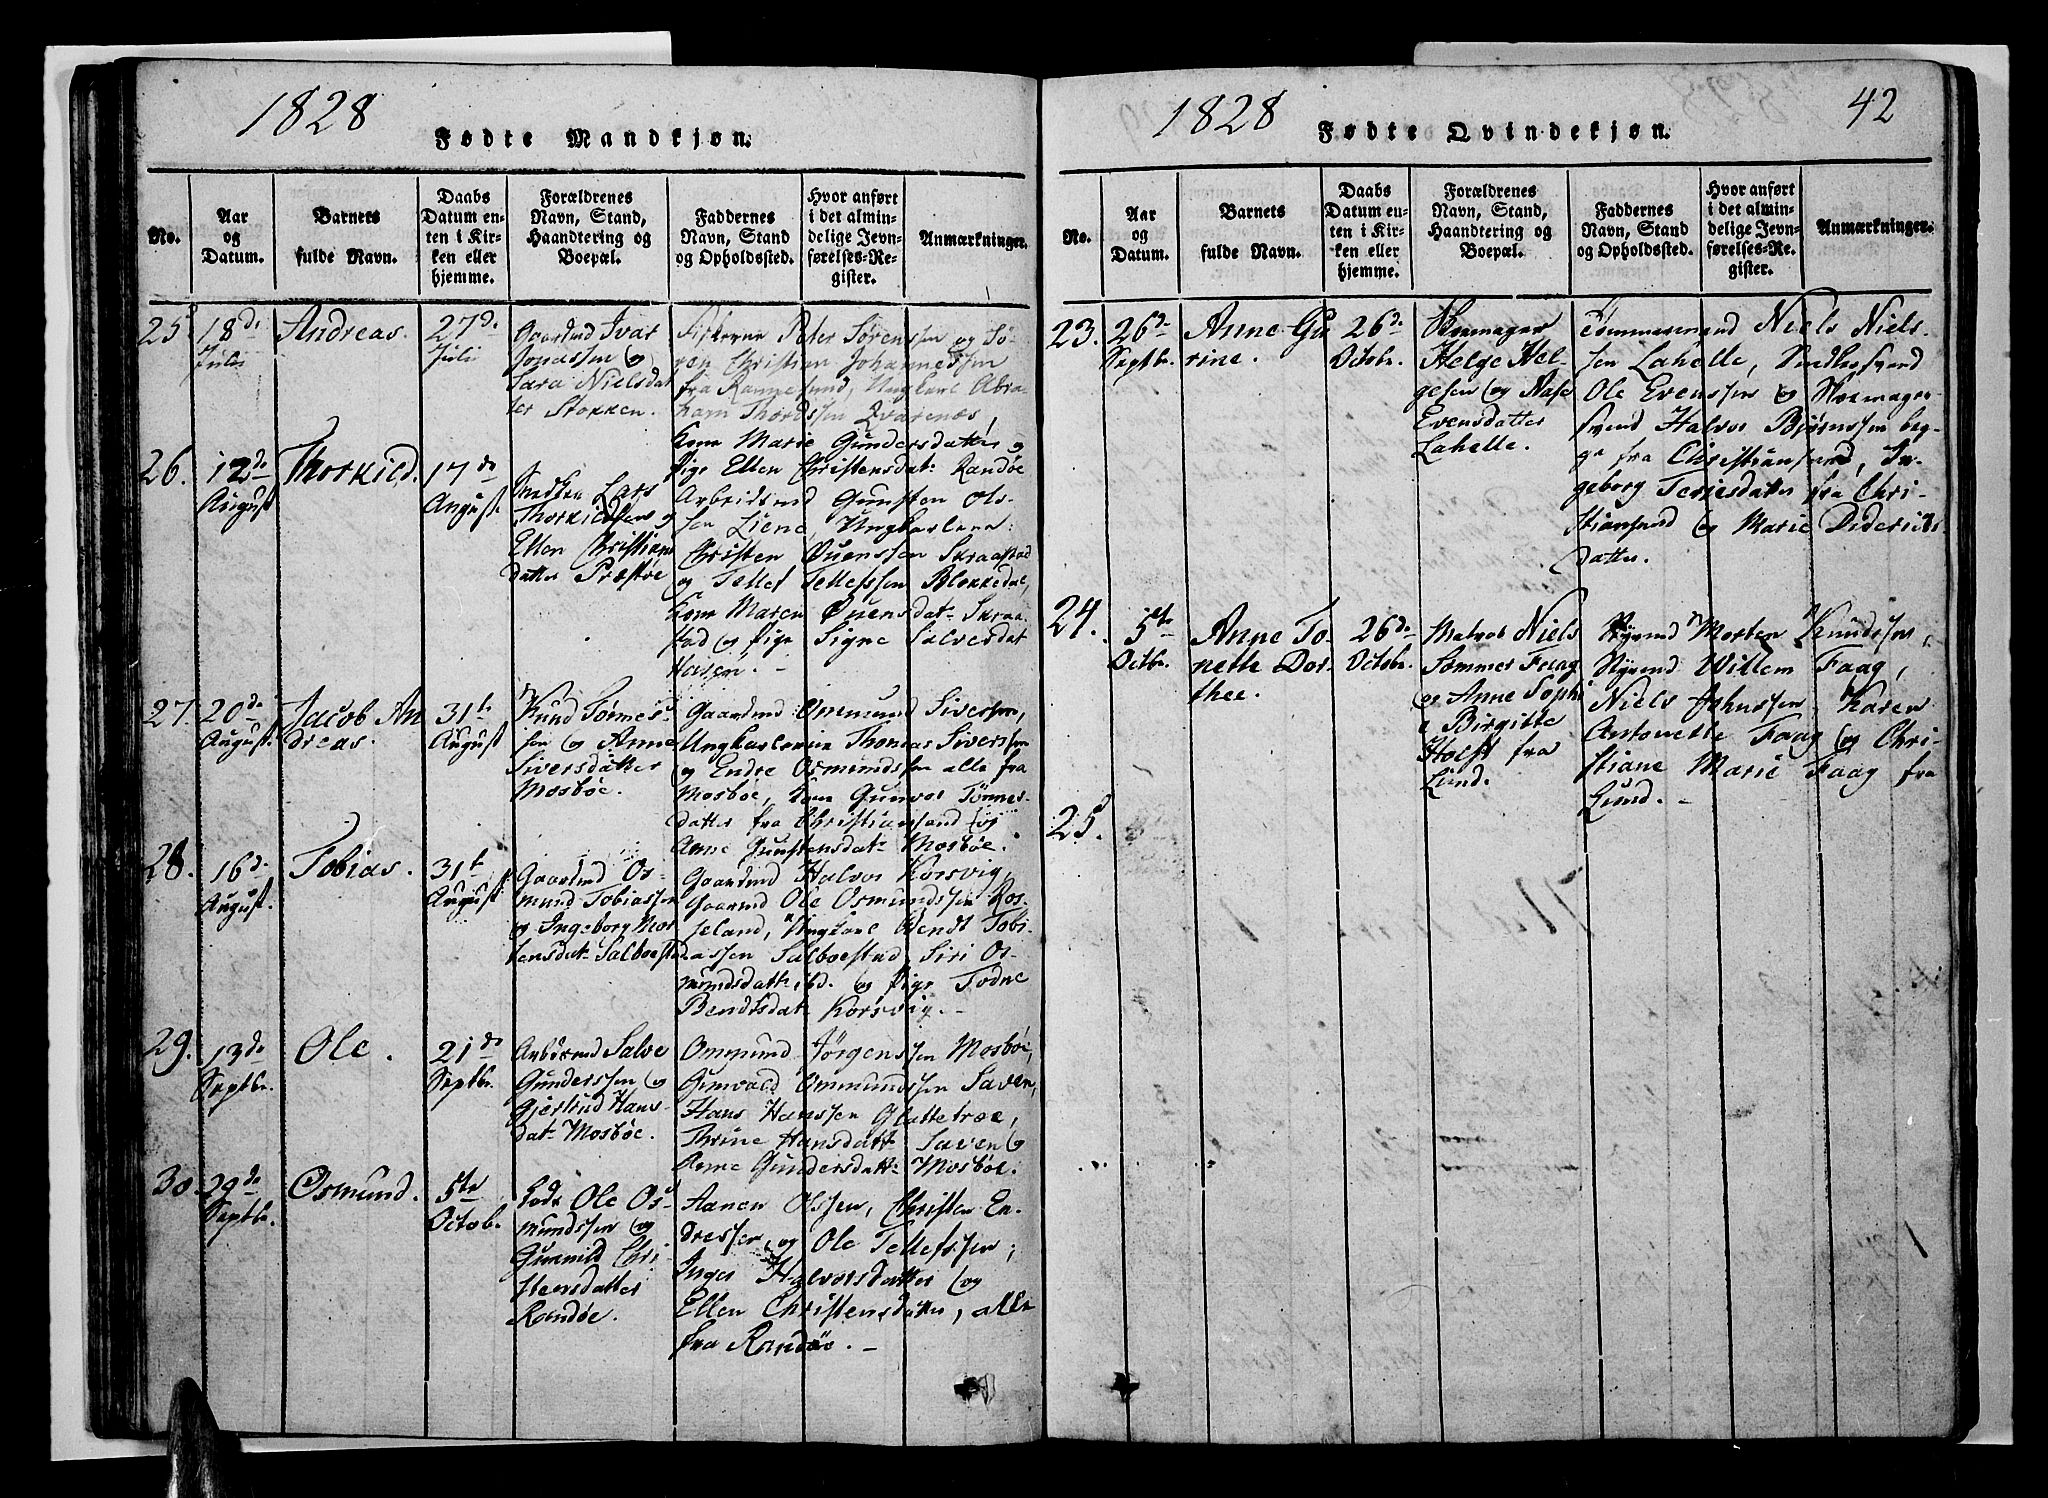 1828
Fødte Mandkjøn.
No.
Aar
og
Datum.
Barnets
fulde Navn.
Daabs
Datum en-
ten i Kir-
ken eller
hjemme.
Forældrenes
Navn, Stand,
Haandtering og
Boepæl.
Faddernes
Navn, Stand
og Opholdssted.
Hvor anført
i det almin-
delige Jevn-
førelses-Re-
gister.
Anmærkninger.
25.
18de
Juli
Andreas.
27de
Juli
Gaardmd Ivar
Jonassen og
Sara Nielsdat
ter Stokken.
Peter Sørenssen og Sø-
ren Christian Johannessen
fra Randøesund, Ungkarl Abra-
ham Thordssen Qvarenæs,
Kone Marie Gundersdatter og
Pige Ellen Christensdatr Randøe
26.
12de
August
Thorkild.
17de
August
Lars
Thorkildsen og
Ellen Christians
datter Præstøe
Arbeidsmd Gunsten Ols-
sen Liene, Ungkarlene
Christen Ouenssen Skraastad
og Tellef Tellefssen Blokkedal,
Kone Maren Ouensdatr Skraa-
stad og Pige Signe Salvesdat
27.
20de
August.
Jacob An
dreas.
31te
August
Knud Tønnes-
sen og Anne
Siversdatter
Mosbøe.
Gaardmd Ommund Siverssen,
Ungkarlene Thomas Siverssen
og Endre Osmundssen alle fra
Mosbøe, Kone Gunvor Tønnes-
datter fra Christiansand og
Anne Gunstensdatr Mosbøe.
28.
16de
August.
Tobias.
31te
August
Gaardmd Os-
mund Tobiassen
og Ingeborg Mor
tensdatr Salboestd
Gaardmd Halvor Korsvig,
Gaardmd Ole Osmundssen Ros-
seland, Ungkarl Bendt Tobi-
assen Salboestad, Siri Os-
mundsdattr ibd. og Pige Todne
Bendtsdat Korsvig.
29.
13de
Septbr.
Ole.
21de
Septbr.
Arbdsmd Salve
Gunderssen og
Gjertrud Hans-
datr Mosbøe.
Ommund Jørgenssen Mosbøe,
Gunvald Ommundssen Saven,
Hans Hanssen Glattetræe,
Thrine Hansdattr Saven og
Anne Gundersdattr Mosbøe.
30.
29de
Septbr.
Osmund.
5te
Octob.
Ole Os-
mundssen og
Gunnild Chri
stensdatter
Randøe.
Aanen Olssen, Christen En-
dressen, og Ole Tellefssen,
Inger Halvorsdatter og
Ellen Christensdatter, alle
fra Randøe.
1828
Fødte Qvindekjøn.
42
No.
Aar
og
Datum.
Barnets
fulde Navn.
Daabs
Datum en-
ten i Kir-
ken eller
hjemme.
Forældrenes
Navn, Stand,
Haandtering og
Boepæl.
Faddernes
Navn, Stand
og Opholdssted.
Hvor anført
i det almin-
delige Jevn-
førelses-Re-
gister.
Anmærkninger.
23.
26de
Septbr.
Anne Gu
rine.
26de
Octobr.
Skomager
Helge Hel-
gesen og Aase
Evensdatter
Lahelle.
Tømmermand Niels Niels-
sen Lahelle, Snedkersvend
Ole Evenssen og Skomager-
svend Halvor Bjørnssen beg-
ge fra Christiansand, In-
geborg Terjesdatter fra Chri-
stiansand og Marie Diderichs
datter.
24.
5te
Octbr.
Anne To-
nette Dor-
thee.
26de
Octobr.
Matros Niels
Sommer Faag
og Anne Sophi
e Birgitte
Holst fra
Lund.
Styrmd Morten Knudssen,
Styrmd Willem Faag,
Niels Johnssen, Karen
Antonette Faag og Chri-
stiane Marie Faag fra
Lund.
25.